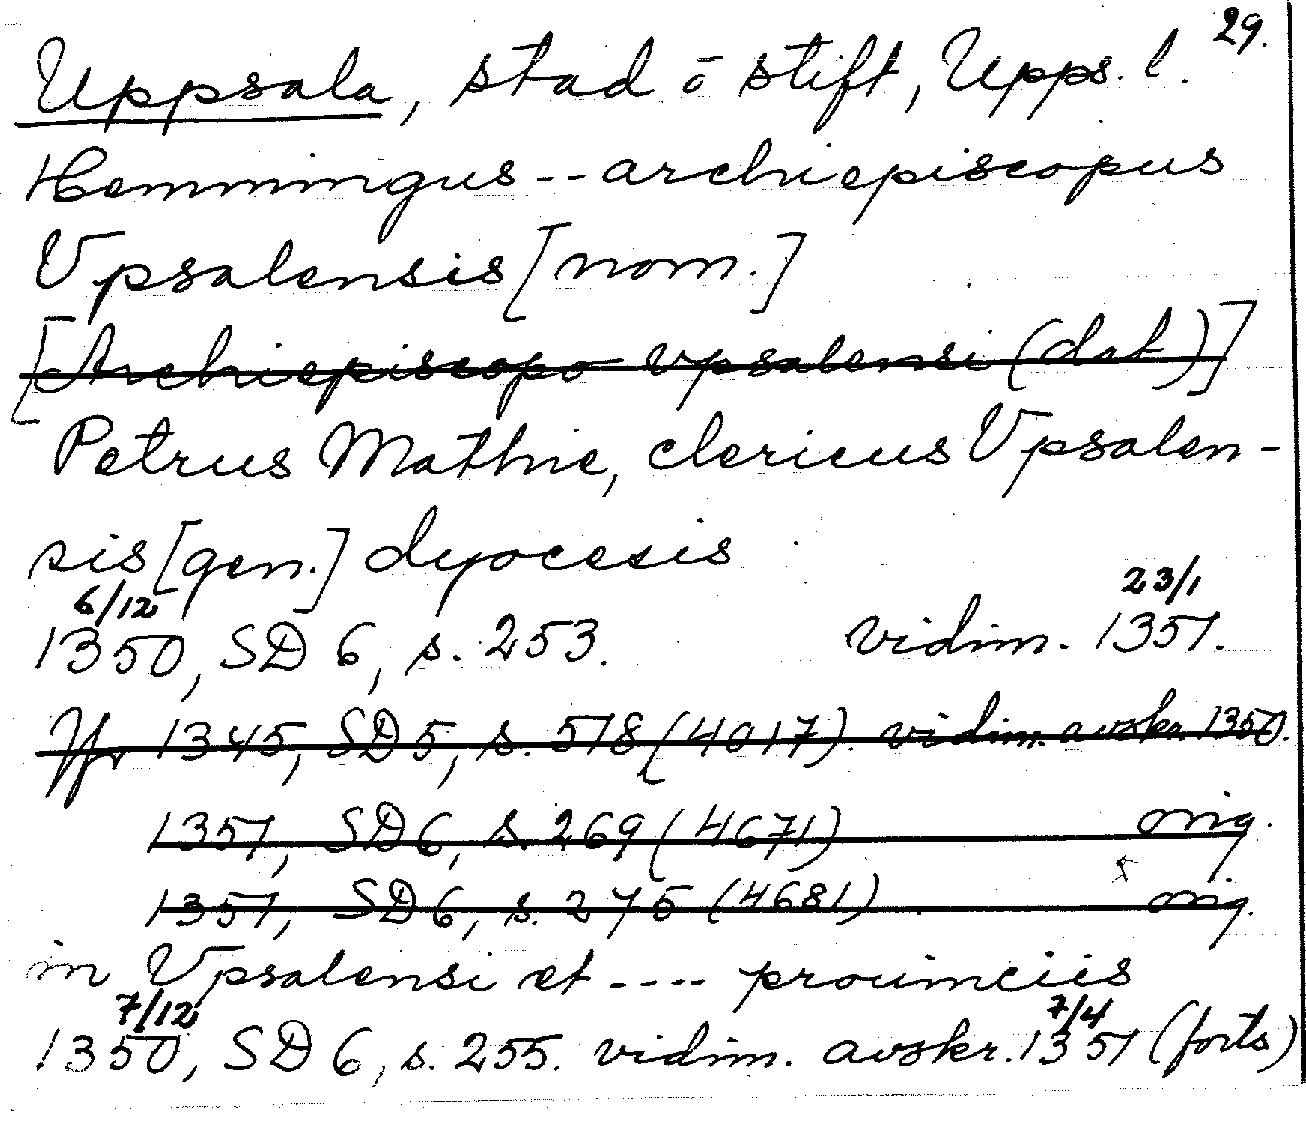 29.
Uppsala, stad o stift, Upps. l.
Hemmingus -- archiepiscopus
Vpsalensis [nom.]
[Archiepiscopo vpsalensi (dat)]
Petrus Mathie, clericus Vpsalen-
sis [gen.] dyocesis
6/12 23/1
1350, SD 6, s. 253. vidim. 1351.
Jfr 1345, SD 5, s. 518 (4017). vidim. avskr. 1350.
1351, SD 6, s. 269 (4671) orig.
1351, SD 6, s. 275 (4681) orig.
in Vpsalensi et ---- prouinciis
7/12 7/4
1350, SD 6, s. 255. vidim. avskr. 1351 (forts)